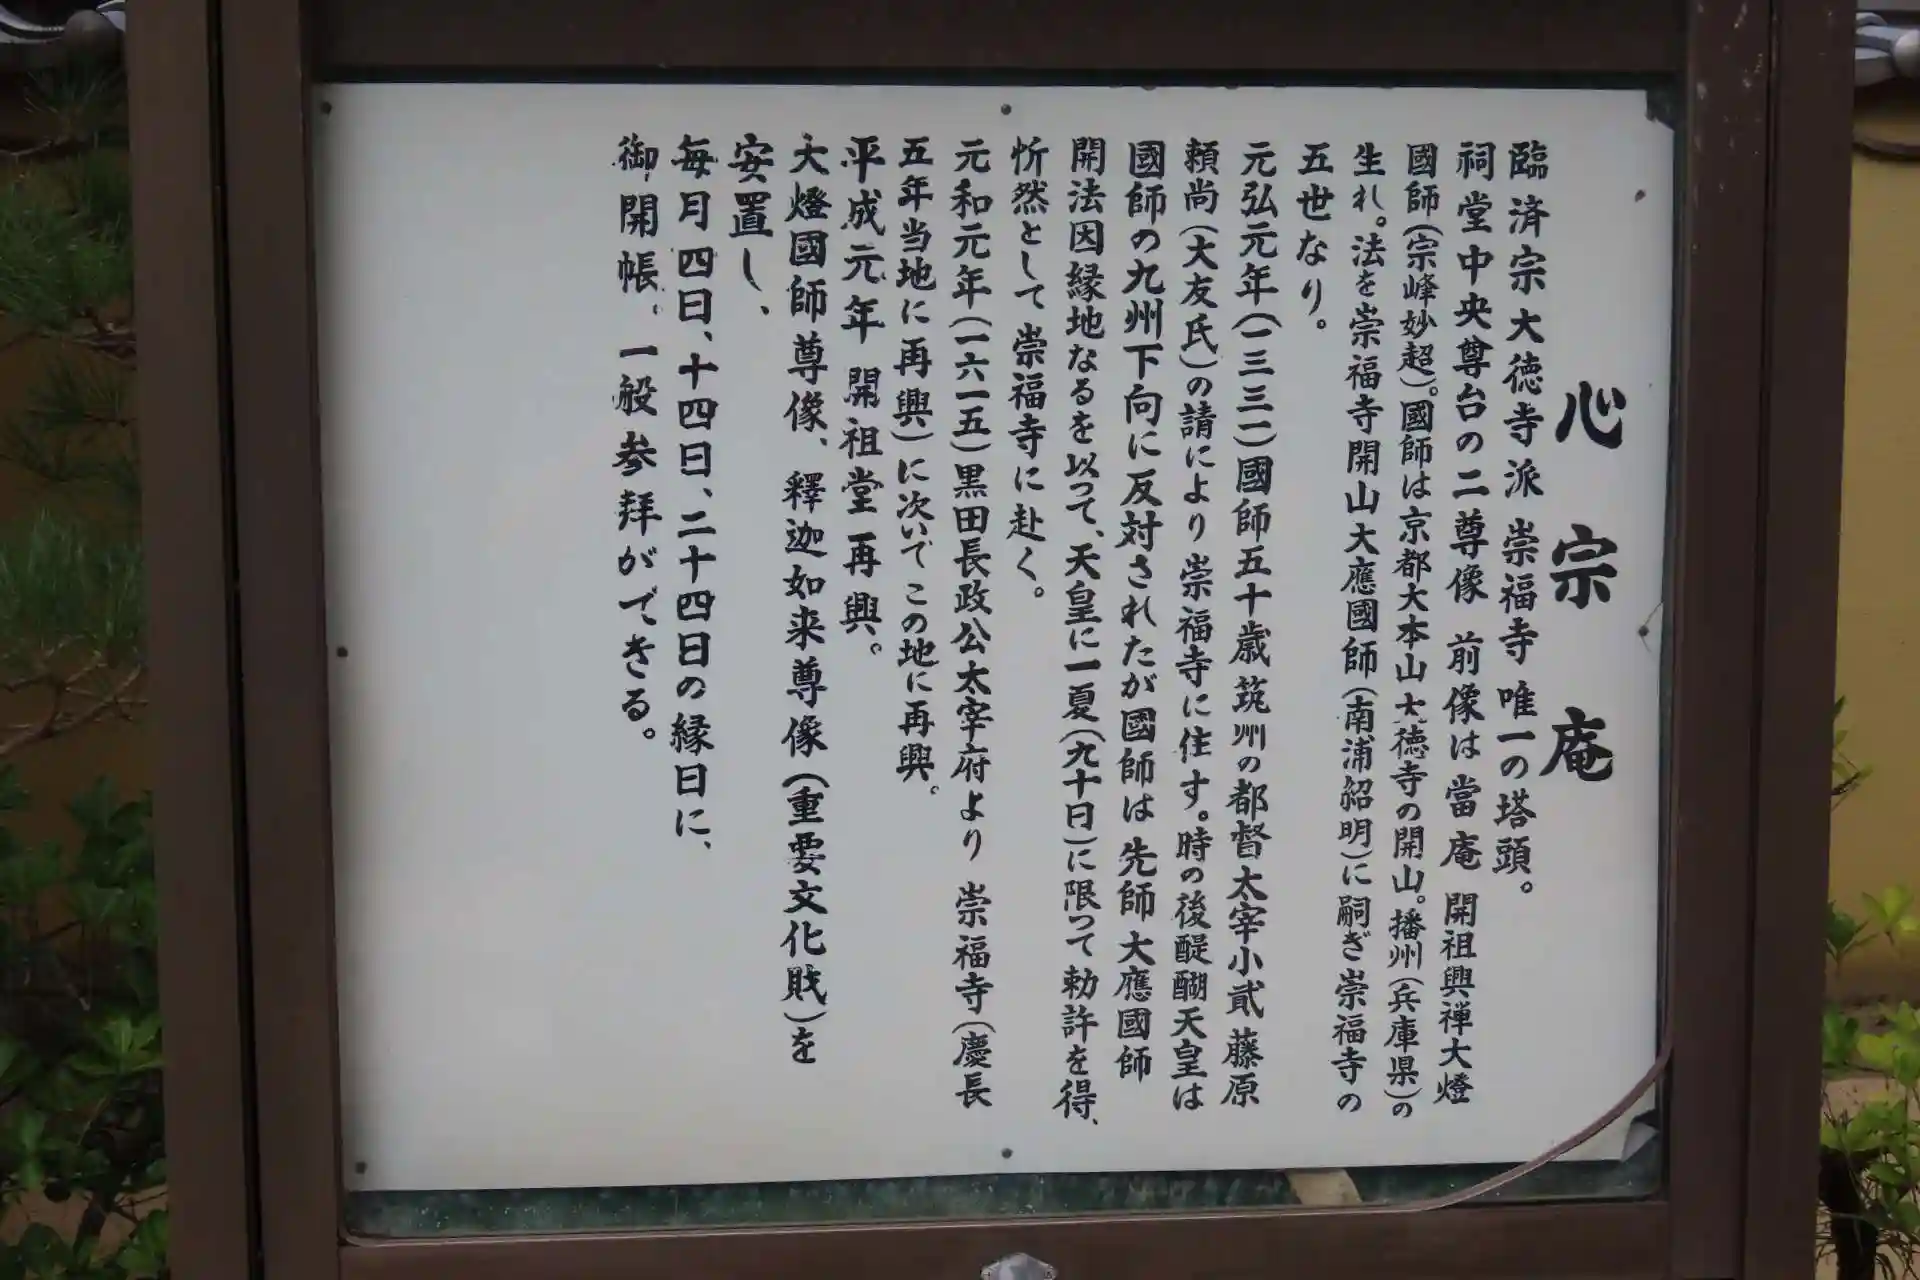 心宗庵
臨済宗大徳寺派 崇福寺 唯一の塔頭。
祠堂中央尊台の二尊像 前像は當庵 開祖興禅大燈
國師(宗峰妙超)。國師は京都大本山大徳寺の開山。播州(兵庫県)の
生れ。法を崇福寺開山大應國師(南浦紹明)に嗣ぎ崇福寺の
五世なり。
元弘元年(一三三一)國師五十歳筑州の都督太宰小貳藤原
頼尚(大友氏)の請により 崇福寺に住す。時の後醍醐天皇は
國師の九州下向に反対されたが國師は 先師大應國師
開法因縁地なるを以って、天皇に一夏(九十日)に限って勅許を得、
忻然として崇福寺に赴く。
元和元年(一六一五)黒田長政公太宰府より 崇福寺(慶長
五年当地に再興)に次いでこの地に再興。
平成元年 開祖堂再興。
大燈國師尊像、釋迦如来尊像(重要文化財)を
安置し、
毎月四日、十四日、二十四日の縁日に、
御開帳。一般参拝ができる。